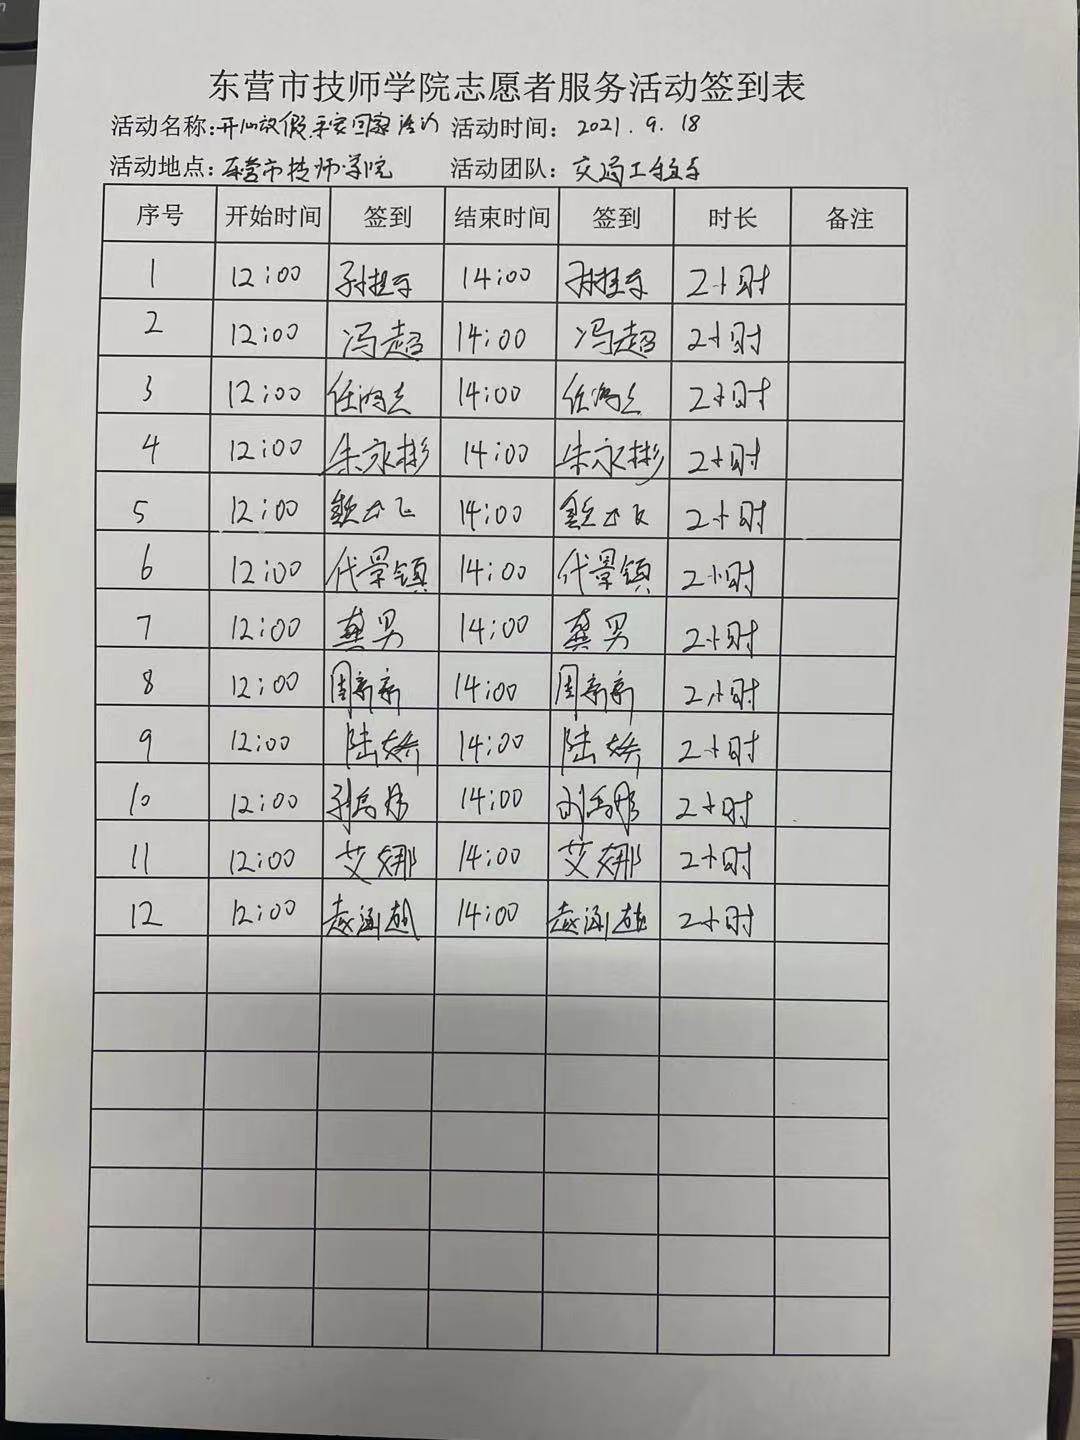 东营市技师学院志愿者服务活动签到表
活动名称: 放假平安回家活动 活动时间: 2021.9.18
活动地点: 东营市技师学院 活动团队: 交通工程系
序号 开始时间 签到 结束时间 签到 时长 备注
1 12:00 14:00 2小时
2 12:00 冯超 14:00 冯超 2小时
3 12:00 14:00 2小时
4 12:00 朱永彬 14:00 朱永彬 2小时
5 12:00 14:00 2小时
6 12:00 代景镇 14:00 代景镇 2小时
7 12:00 龚男 14:00 龚男 2小时
8 12:00 周新新 14:00 周新新 2小时
9 12:00 陆娇 14:00 陆娇 2小时
10 12:00 14:00 2小时
11 12:00 艾娜 14:00 艾娜 2小时
12 12:00 14:00 2小时